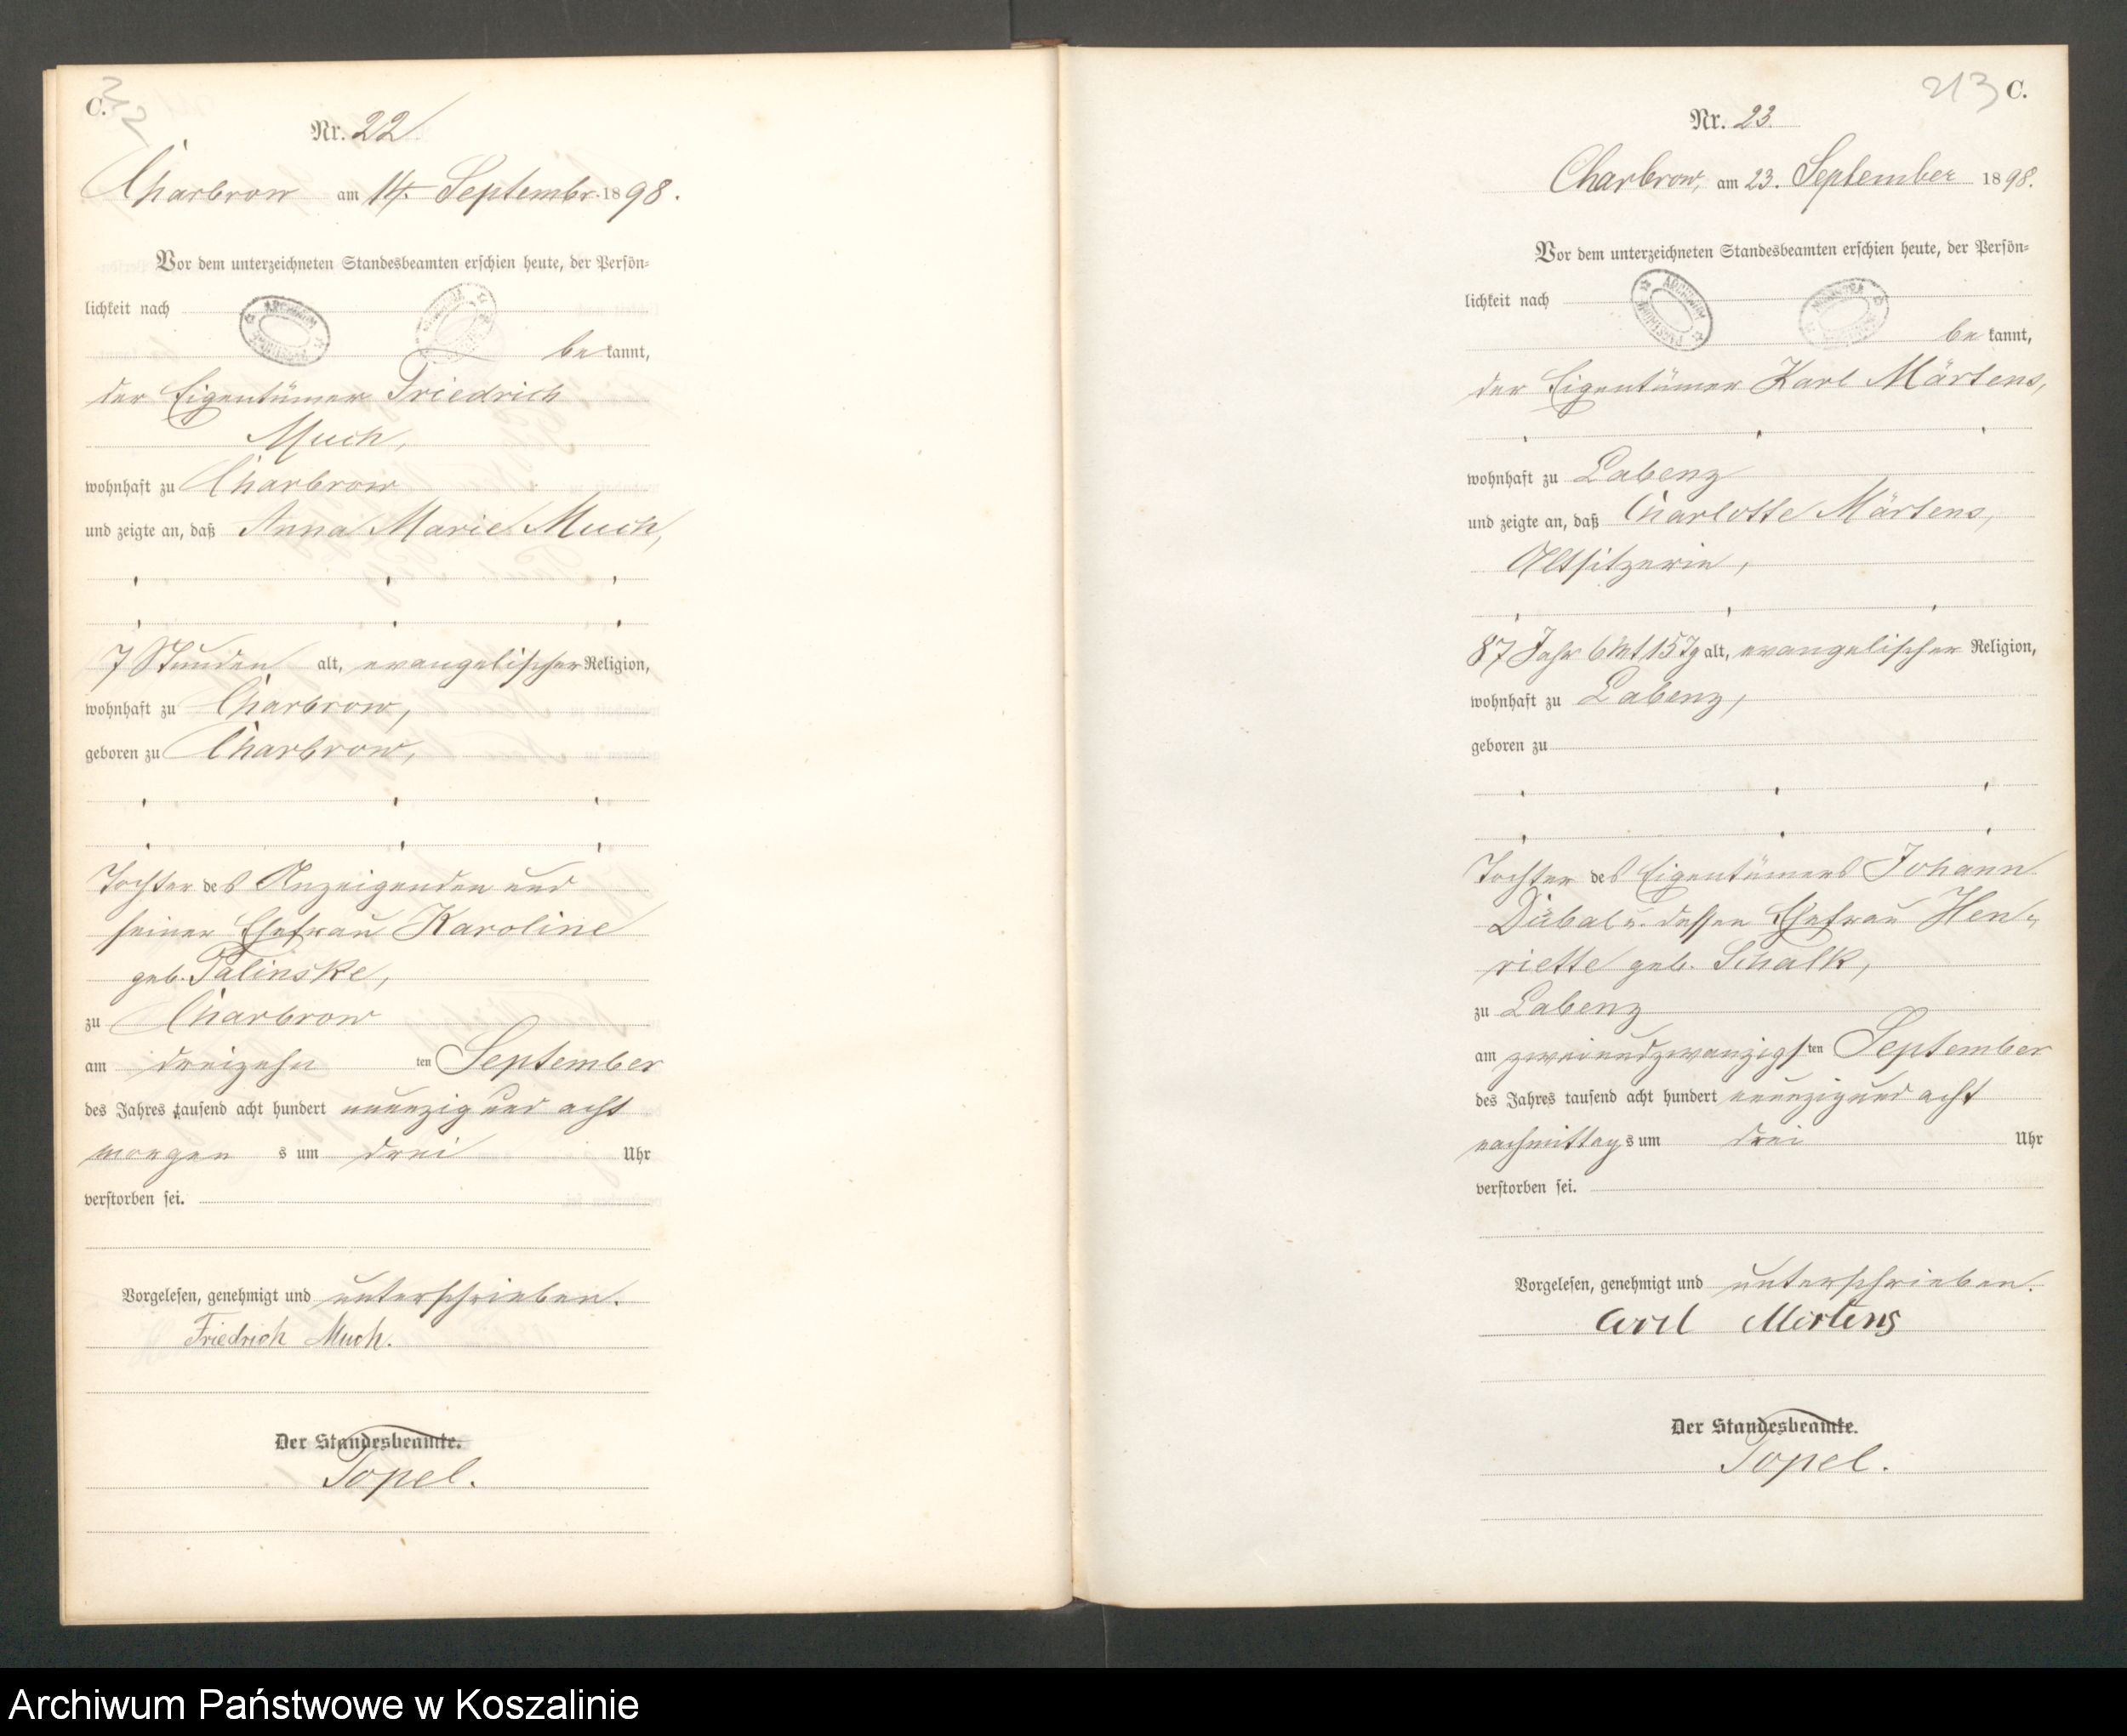 C. 212
Nr. 22
Charbrow am 14. Septembr. 1898.
Vor dem unterzeichneten Standesbeamten erschien heute, der Persön-
lichkeit nach
ARCHIWUM
be kannt,
der Eigentümer Friedrich
Much,
wohnhaft zu Charbrow
und zeigte an, daß Anna Marie Much,
7 Stunden alt, evangelischer Religion,
wohnhaft zu Charbrow,
geboren zu Charbrow,
Tochter des Anzeigenden und
seiner Ehefrau Karoline
geb. Palinske,
zu Charbrow
am dreizehn ten September
des Jahres tausend acht hundert neunzig und acht
morgen s um drei Uhr
verstorben sei.
Vorgelesen, genehmigt und unterschrieben.
Friedrich Much.
Der Standesbeamte.
Topel.
213 C.
Nr. 23.
Charbrow, am 23. September 1898.
Vor dem unterzeichneten Standesbeamten erschien heute, der Persön-
lichkeit nach
ARCHIWUM
be kannt,
der Eigentümer Karl Märtens,
wohnhaft zu Labenz
und zeigte an, daß Charlotte Märtens,
Altsitzerin,
87 Jahr 6 Mt 15 Tg alt, evangelischer Religion,
wohnhaft zu Labenz,
geboren zu
Tochter des Eigentümers Johann
Dübal u. dessen Ehefrau Hen-
riette geb. Schalk,
zu Labenz
am zweiundzwanzigsten September
des Jahres tausend acht hundert neunzig und acht
nachmittags um drei Uhr
verstorben sei.
Vorgelesen, genehmigt und unterschrieben.
Carl Mertens
Der Standesbeamte.
Topel.
Archiwum Państwowe w Koszalinie